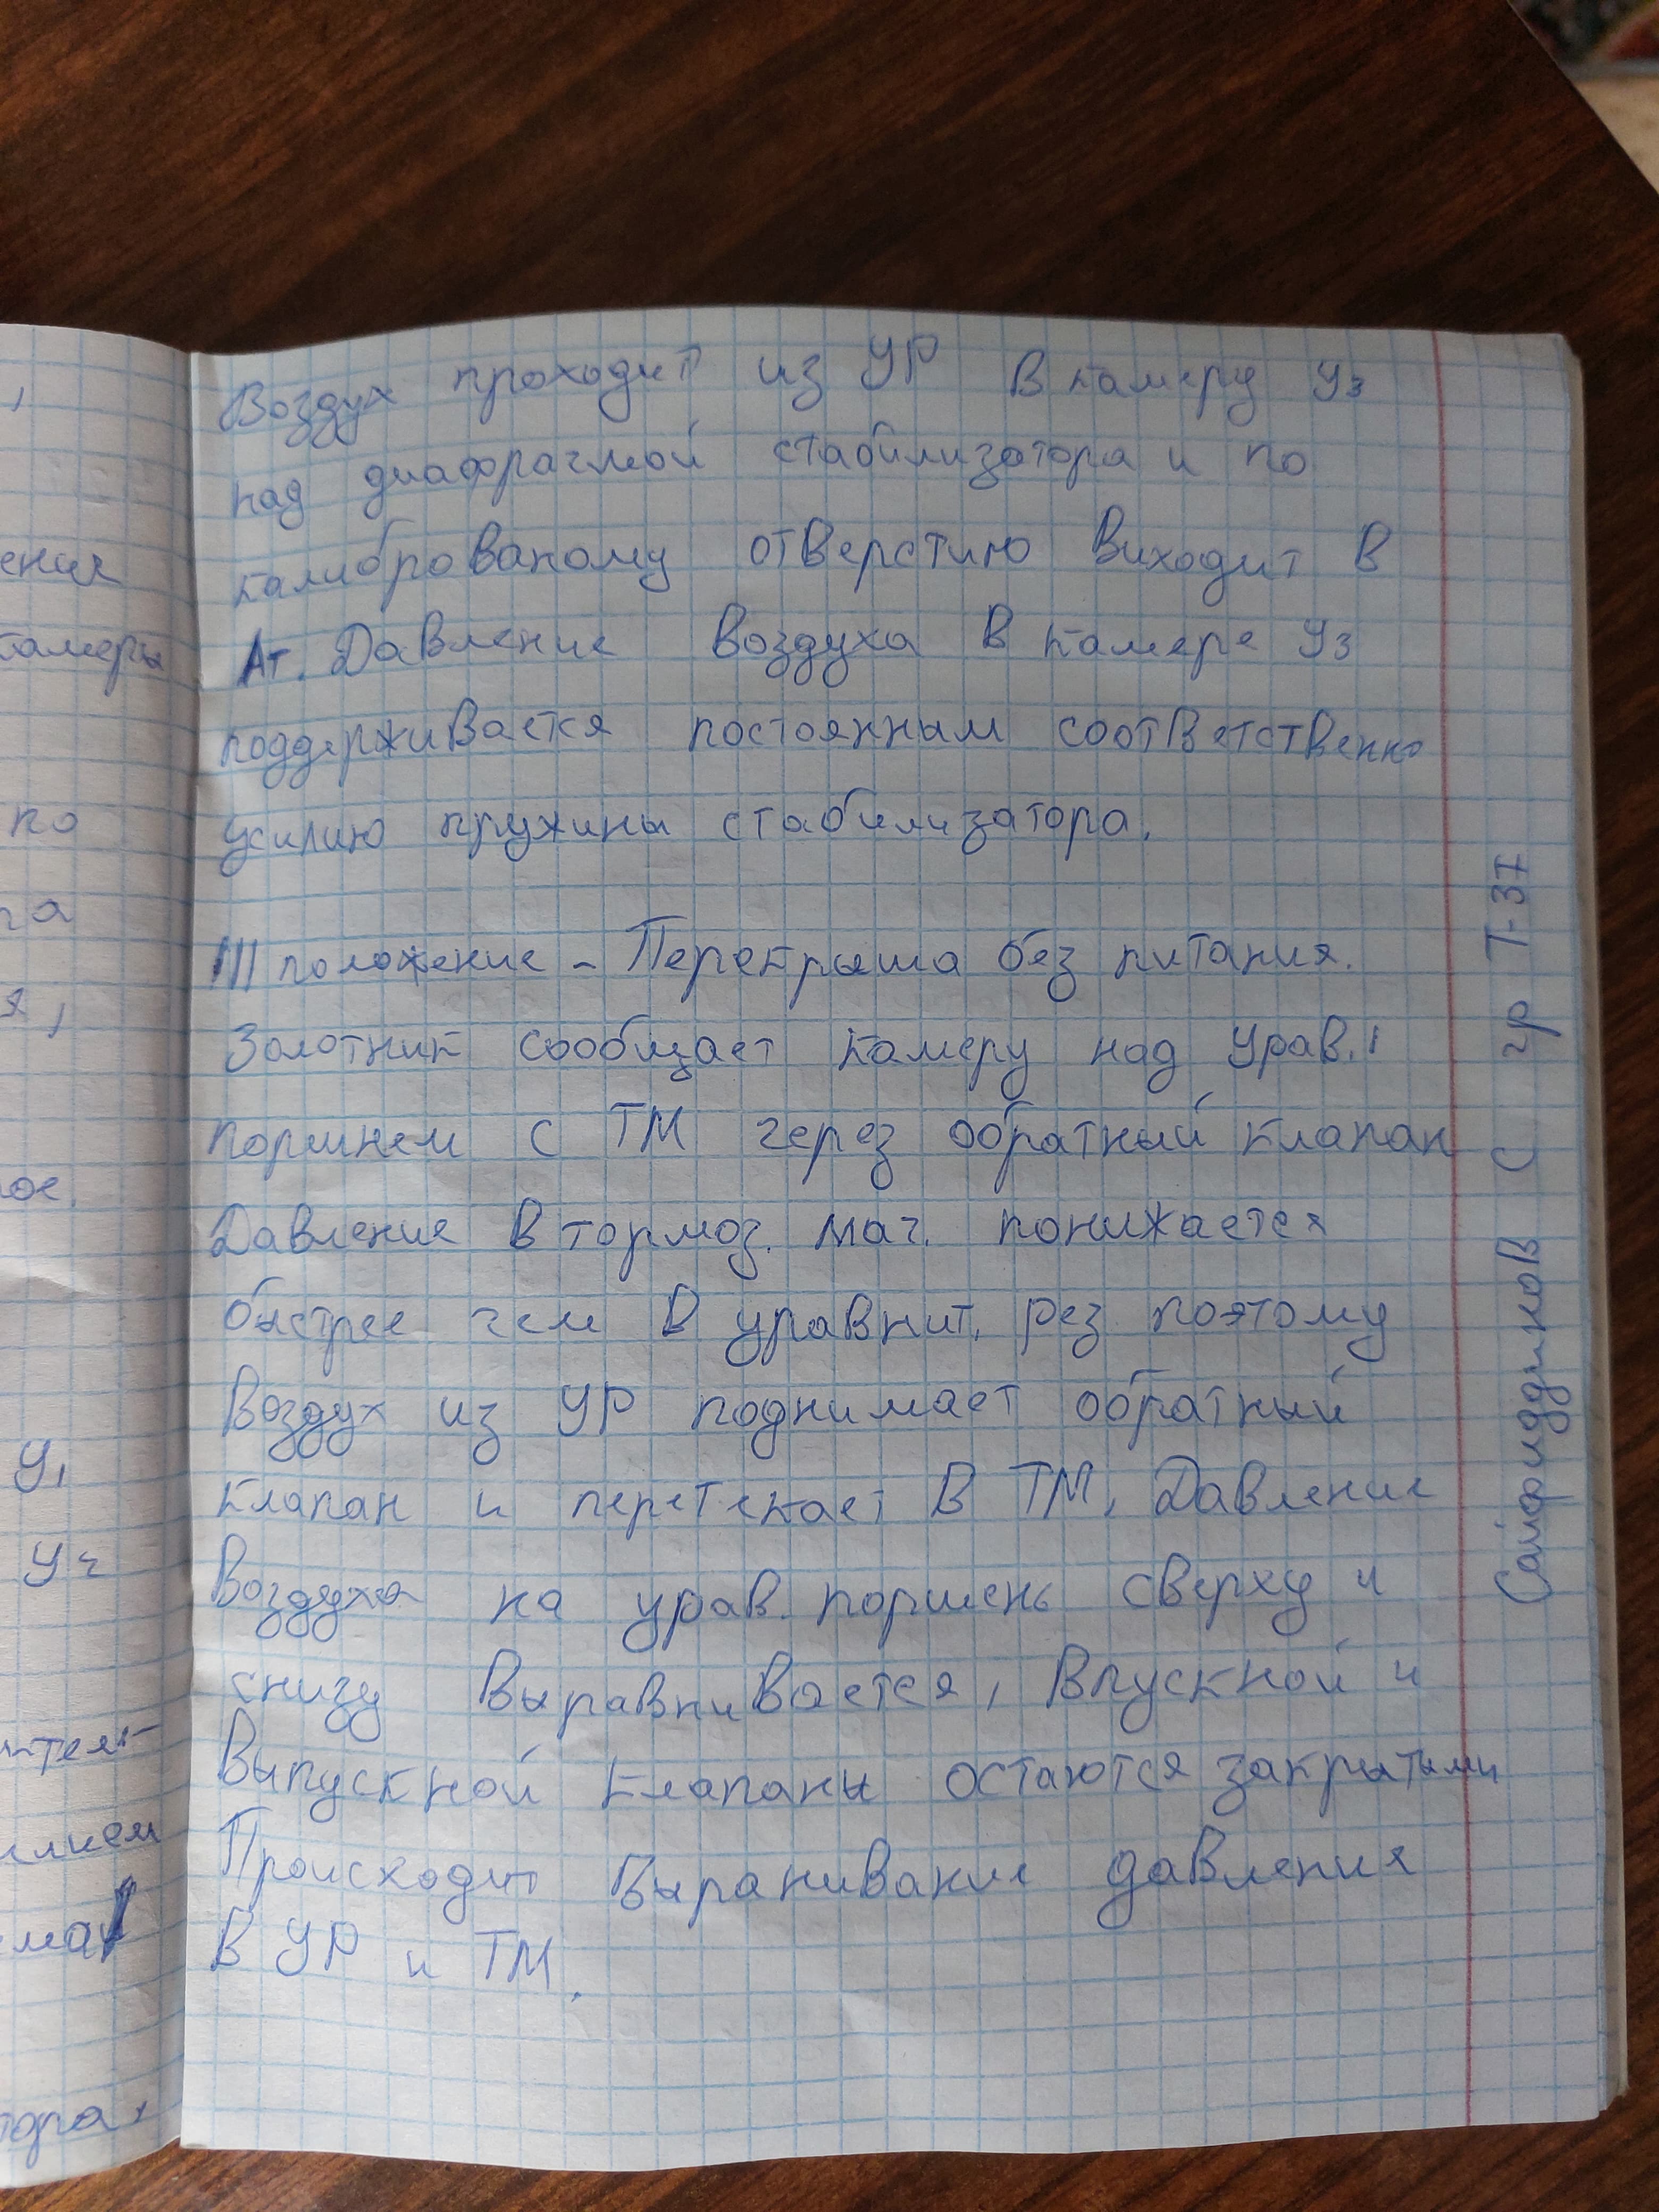 Воздух проходит из УР в камеру У3
над диафрагмой стабилизатора и по
калиброваному отверстию виходит в
Ат. Давление воздуха в камере У3
поддерживается постоянным соответственно
усилию пружины стабилизатора.
III положение - Перекрыша без питания.
Золотник сообщает камеру над урав.
поршнем с ТМ через обратный клапан
Давление в тормоз. маг. понижается
быстрее чем в уравнит. рез поэтому
воздух из УР поднимает обратный
клапан и перетекает в ТМ, Давление
воздуха на урав. поршень сверху и
снизу выравнивается, впускной и
выпускной клапаны остаются закрытыми
Происходит выранивание давления
в УР и ТМ.
Сайфиддинов С гр Т-37
,
ения
камеры
по
я,
ое.
У1
ител-
илием
тора